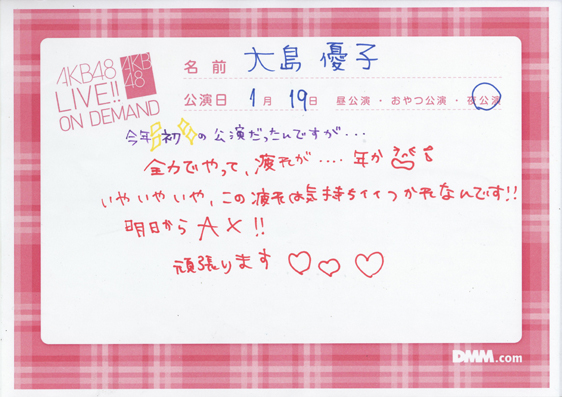 AKB48
LIVE!!
ON DEMAND
AKB
48
名前 大島 優子
公演日 1月 19日 昼公演・おやつ公演・夜公演
今年初の公演だったんですが・・・
全力でやって、疲れが・・・・年か
いやいやいや、この疲れは気持ちイイつかれなんです!!
明日からAX!!
頑張ります
DMM.com